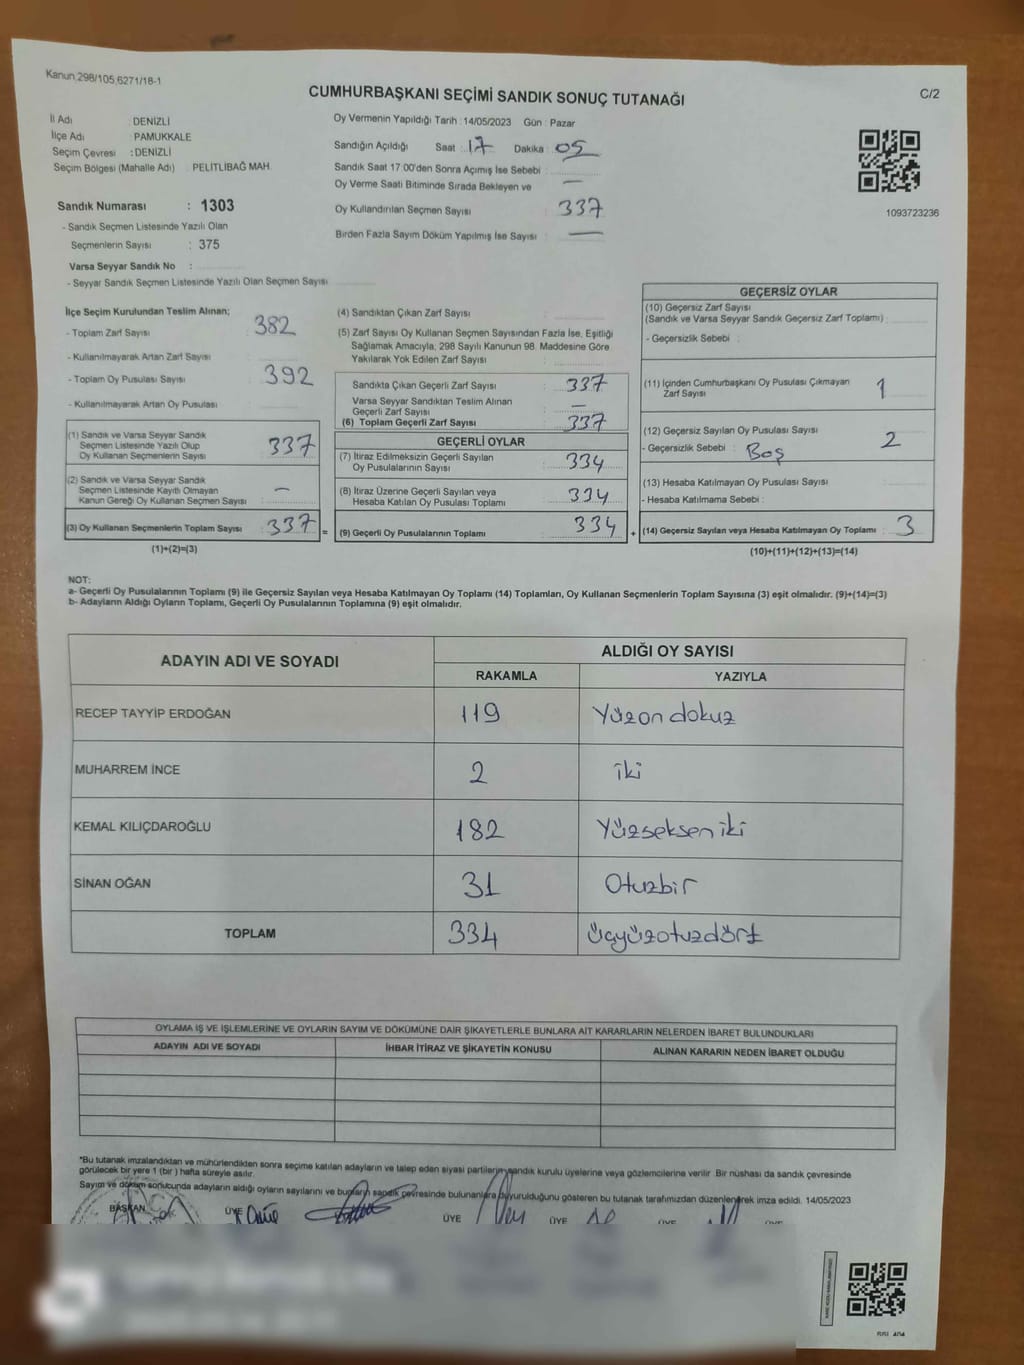 Kanun,298/105,6271/18-1
C/2
CUMHURBAŞKANI SEÇİMİ SANDIK SONUÇ TUTANAĞI
İl Adı : DENİZLİ
İlçe Adı : PAMUKKALE
Seçim Çevresi : DENİZLİ
Seçim Bölgesi (Mahalle Adı) : PELİTLİBAĞ MAH.
Sandık Numarası : 1303
- Sandık Seçmen Listesinde Yazılı Olan
Seçmenlerin Sayısı : 375
Varsa Seyyar Sandık No :
- Seyyar Sandık Seçmen Listesinde Yazılı Olan Seçmen Sayısı
Oy Vermenin Yapıldığı Tarih : 14/05/2023 Gün : Pazar
Sandığın Açıldığı Saat : 17 Dakika : 05
Sandık Saat 17:00'den Sonra Açımış İse Sebebi :
Oy Verme Saati Bitiminde Sırada Bekleyen ve —
Oy Kullandırılan Seçmen Sayısı : 337
Birden Fazla Sayım Döküm Yapılmış İse Sayısı : —
1093723236
İlçe Seçim Kurulundan Teslim Alınan;
- Toplam Zarf Sayısı : 382
- Kullanılmayarak Artan Zarf Sayısı :
- Toplam Oy Pusulası Sayısı : 392
- Kullanılmayarak Artan Oy Pusulası :
(1) Sandık ve Varsa Seyyar Sandık
Seçmen Listesinde Yazılı Olup
Oy Kullanan Seçmenlerin Sayısı : 337
(2) Sandık ve Varsa Seyyar Sandık
Seçmen Listesinde Kayıtlı Olmayan
Kanun Gereği Oy Kullanan Seçmen Sayısı : —
(3) Oy Kullanan Seçmenlerin Toplam Sayısı : 337
(1)+(2)=(3)
=
(4) Sandıktan Çıkan Zarf Sayısı :
(5) Zarf Sayısı Oy Kullanan Seçmen Sayısından Fazla İse, Eşitliği
Sağlamak Amacıyla, 298 Sayılı Kanunun 98. Maddesine Göre
Yakılarak Yok Edilen Zarf Sayısı :
Sandıkta Çıkan Geçerli Zarf Sayısı : 337
Varsa Seyyar Sandıktan Teslim Alınan
Geçerli Zarf Sayısı : —
(6) Toplam Geçerli Zarf Sayısı : 337
GEÇERLİ OYLAR
(7) İtiraz Edilmeksizin Geçerli Sayılan
Oy Pusulalarının Sayısı : 334
(8) İtiraz Üzerine Geçerli Sayılan veya
Hesaba Katılan Oy Pusulası Toplamı : 334
(9) Geçerli Oy Pusulalarının Toplamı : 334
+
GEÇERSİZ OYLAR
(10) Geçersiz Zarf Sayısı
(Sandık ve Varsa Seyyar Sandık Geçersiz Zarf Toplamı) :
- Geçersizlik Sebebi :
(11) İçinden Cumhurbaşkanı Oy Pusulası Çıkmayan
Zarf Sayısı : 1
(12) Geçersiz Sayılan Oy Pusulası Sayısı : 2
- Geçersizlik Sebebi : Boş
(13) Hesaba Katılmayan Oy Pusulası Sayısı :
- Hesaba Katılmama Sebebi :
(14) Geçersiz Sayılan veya Hesaba Katılmayan Oy Toplamı : 3
(10)+(11)+(12)+(13)=(14)
NOT:
a- Geçerli Oy Pusulalarının Toplamı (9) ile Geçersiz Sayılan veya Hesaba Katılmayan Oy Toplamı (14) Toplamları, Oy Kullanan Seçmenlerin Toplam Sayısına (3) eşit olmalıdır. (9)+(14)=(3)
b- Adayların Aldığı Oyların Toplamı, Geçerli Oy Pusulalarının Toplamına (9) eşit olmalıdır.
ADAYIN ADI VE SOYADI
ALDIĞI OY SAYISI
RAKAMLA YAZIYLA
RECEP TAYYİP ERDOĞAN 119 Yüzon dokuz
MUHARREM İNCE 2 iki
KEMAL KILIÇDAROĞLU 182 Yüzseksen iki
SİNAN OĞAN 31 Otuzbir
TOPLAM 334 üçyüzotuzdört
OYLAMA İŞ VE İŞLEMLERİNE VE OYLARIN SAYIM VE DÖKÜMÜNE DAİR ŞİKAYETLERLE BUNLARA AİT KARARLARIN NELERDEN İBARET BULUNDUKLARI
ADAYIN ADI VE SOYADI İHBAR İTİRAZ VE ŞİKAYETİN KONUSU ALINAN KARARIN NEDEN İBARET OLDUĞU
*Bu tutanak imzalandıktan ve mühürlendikten sonra seçime katılan adayların ve talep eden siyasi partilerin sandık kurulu üyelerine veya gözlemcilerine verilir. Bir nüshası da sandık çevresinde
görülecek bir yere 1 (bir) hafta süreyle asılır.
Sayım ve döküm sonucunda adayların aldığı oyların sayılarını ve bunların sandık çevresinde bulunanlara duyurulduğunu gösteren bu tutanak tarafımızdan düzenlenerek imza edildi. 14/05/2023
BAŞKAN ÜYE ÜYE ÜYE ÜYE ÜYE